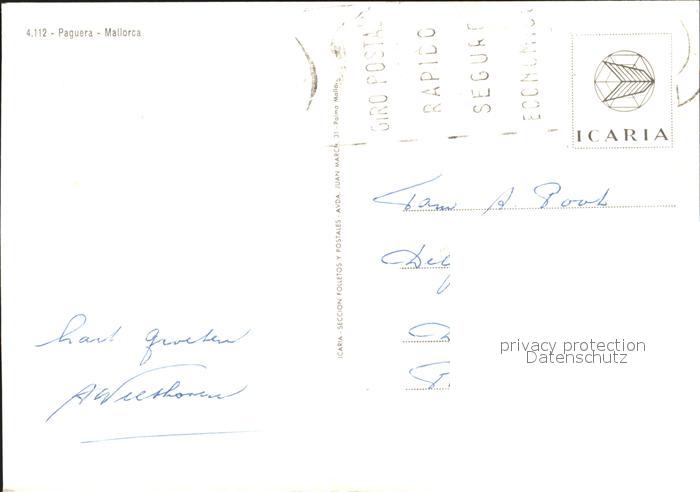 4.112 - Paguera - Mallorca
GIRO POSTAL
RAPIDO
SEGURO
ECONOMICO
ICARIA
ICARIA - SECCION FOLLETOS Y POSTALES - AVDA. JUAN MARCH, 31 - Palma Mallorca
Fam A Pool
privacy protection
Datenschutz
hart groeten